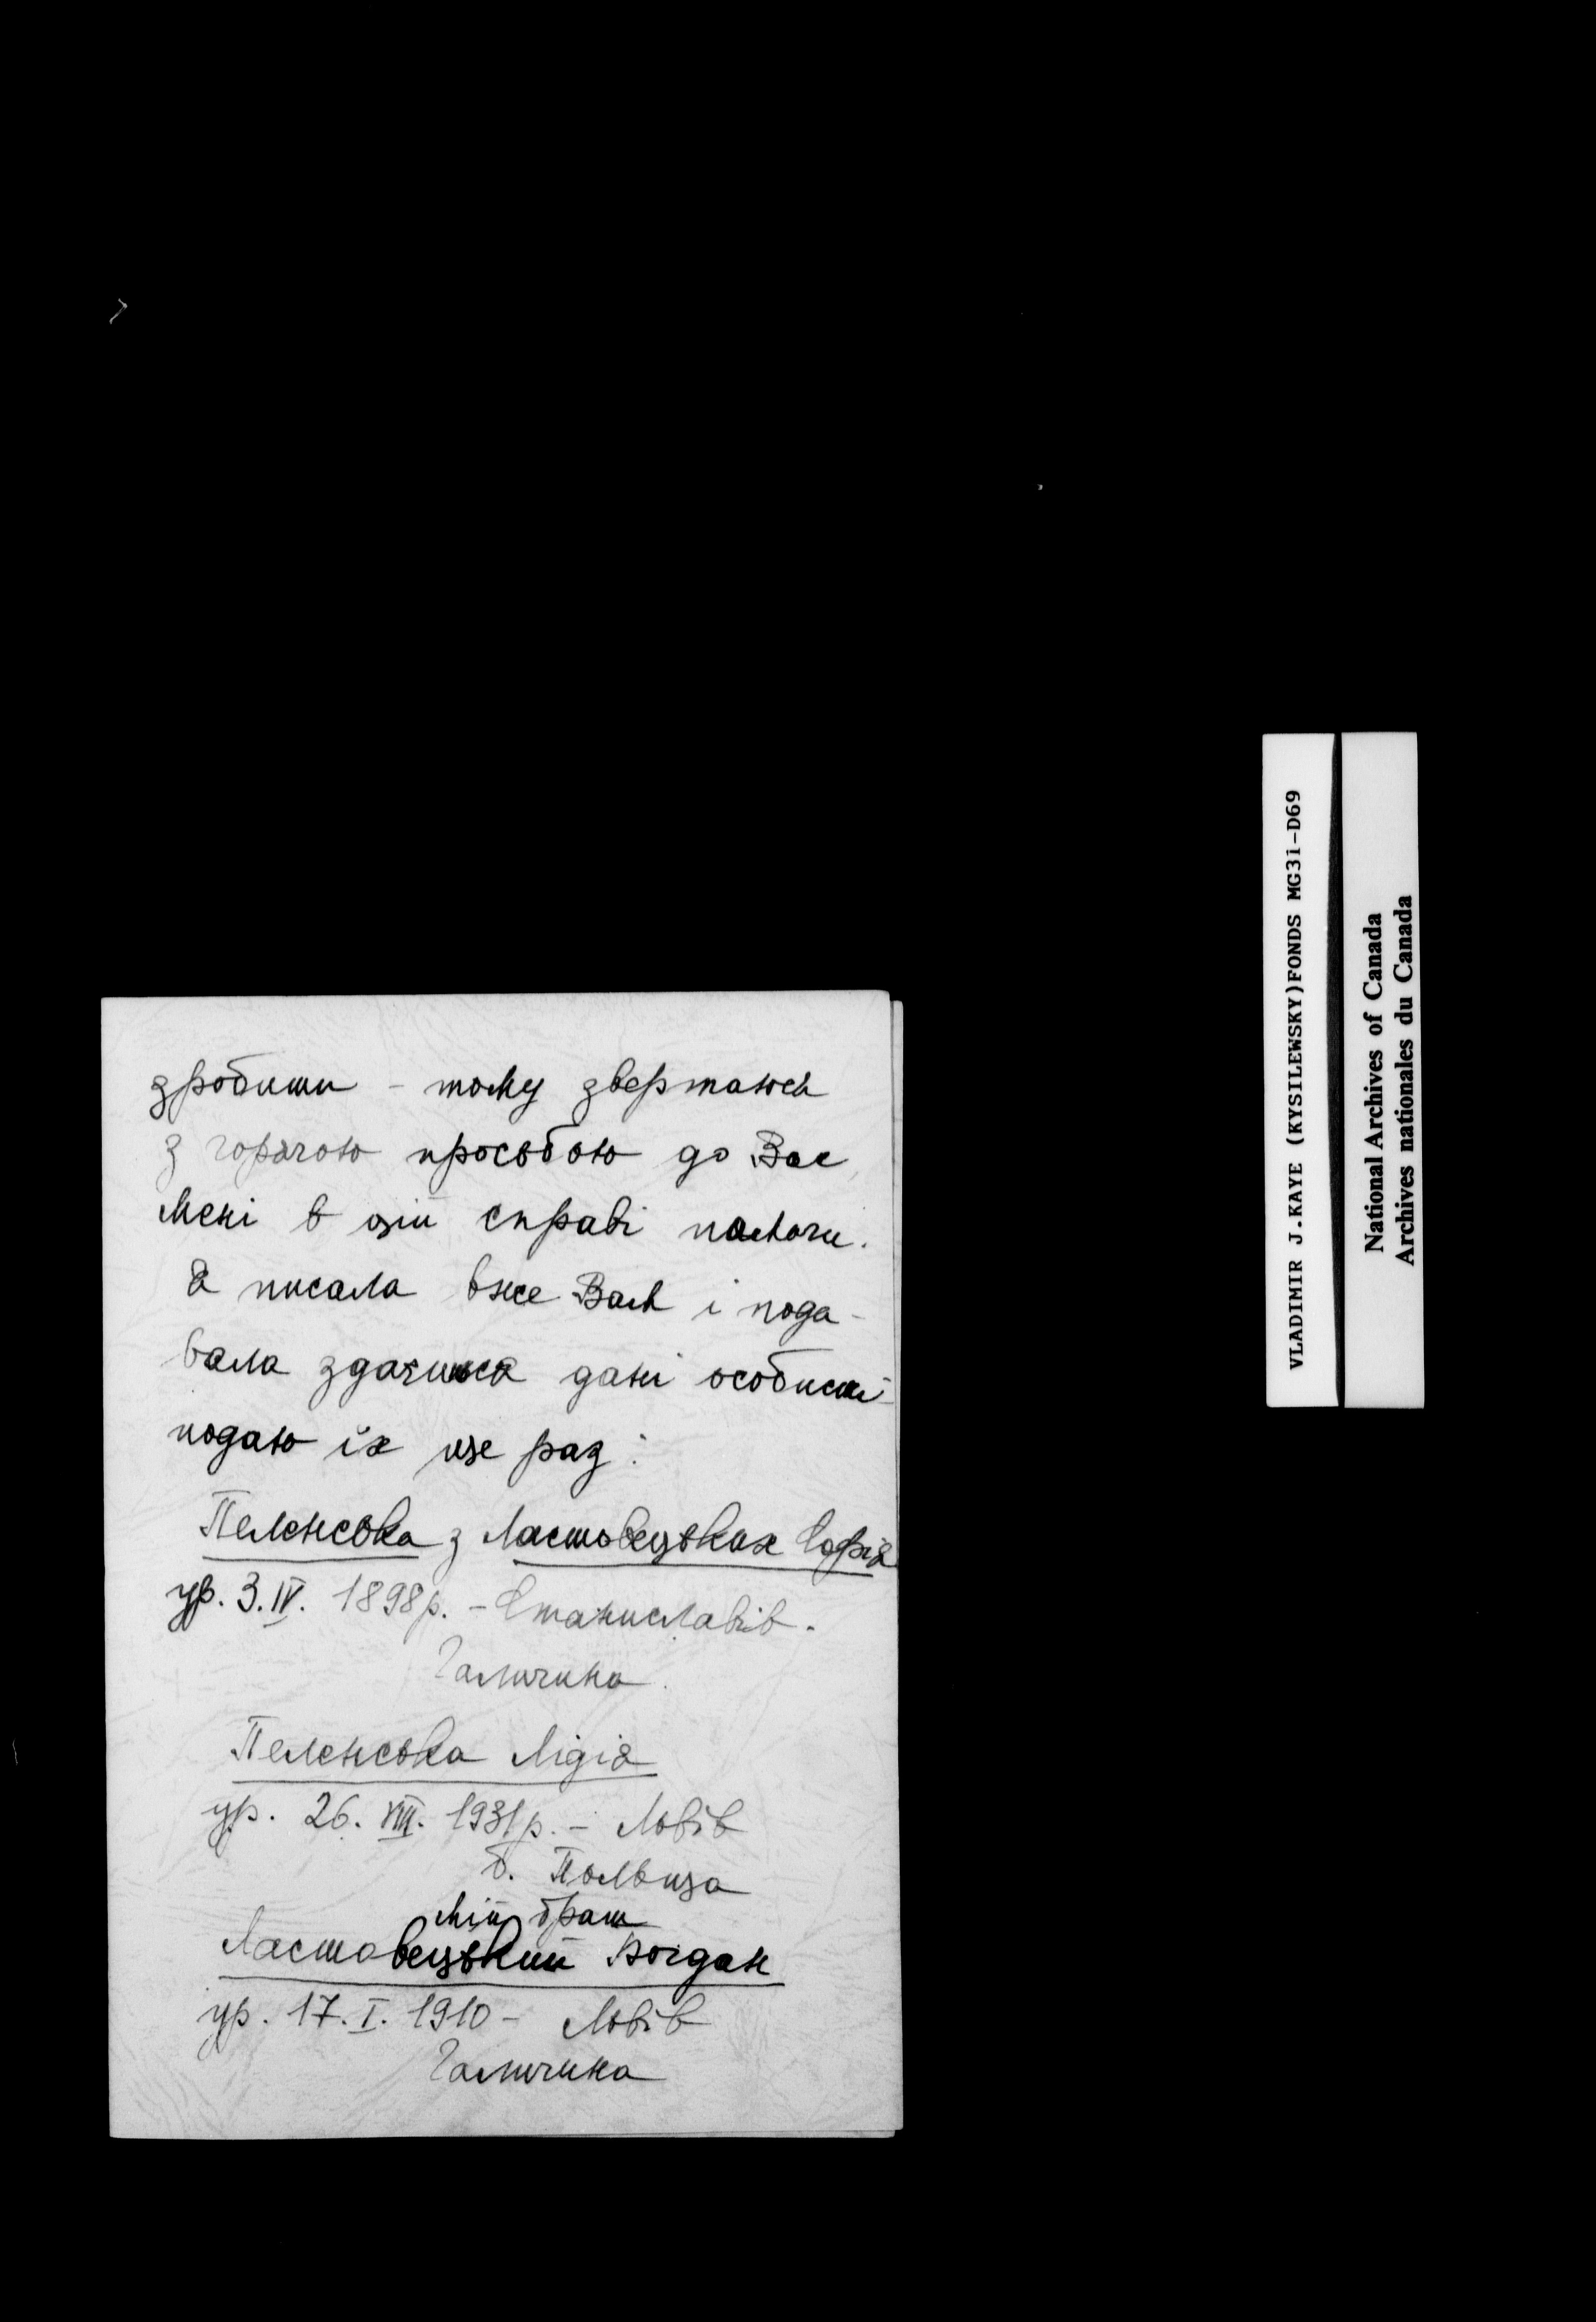 зробити - тому звертаюсь
з горячою просьбою до Вас
мені в цій справі помочи.
Я писала вже Вам і пода-
вала здається дані особисті
подаю їх ще раз:
Пеленська з Ластовецьких Софія
ур. 3.IV. 1898р. - Станиславів.
Галичина.
Пеленська Лідія
ур. 26. VIII. 1931р. - Львів
б. Польща
мій брат
Ластовецький Богдан
ур. 17. I. 1910 - Львів
Галичина
VLADIMIR J.KAYE (KYSILEWSKY)FONDS MG31-D69
National Archives of Canada
Archives nationales du Canada